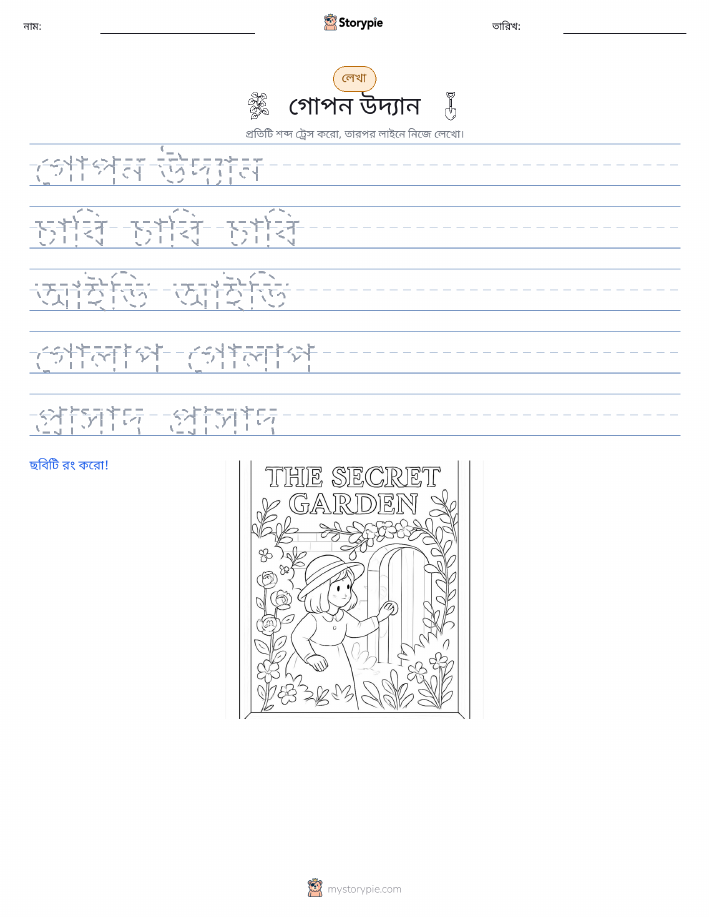 নাম:
Storypie
তারিখ:
লেখা
গোপন উদ্যান
প্রতিটি শব্দ ট্রেস করো, তারপর লাইনে নিজে লেখো।
গোপন উদ্যান
চাবি চাবি চাবি
আইভি আইভি
গোলাপ গোলাপ
প্রাসাদ প্রাসাদ
ছবিটি রং করো!
THE SECRET
GARDEN
mystorypie.com